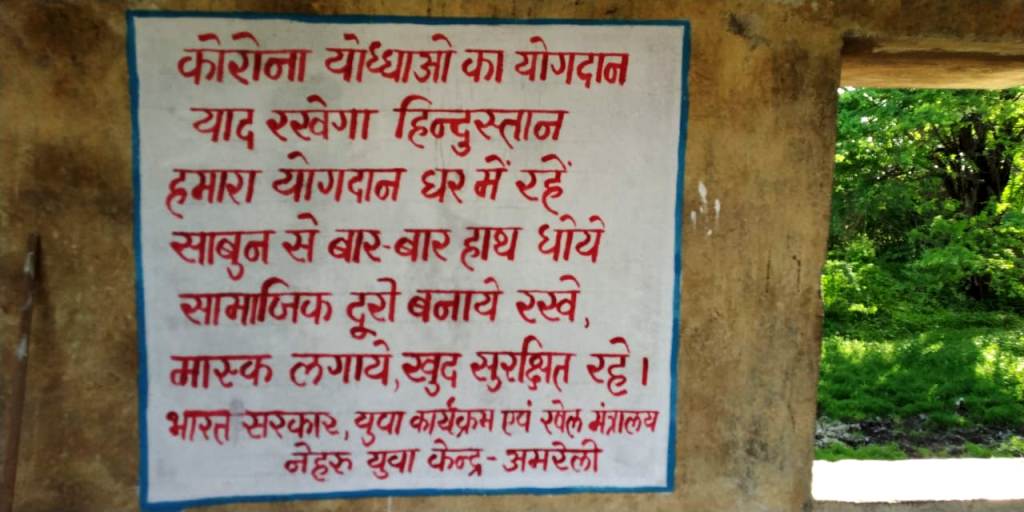 कोरोना योध्धाओ का योगदान
याद रखेगा हिन्दुस्तान
हमारा योगदान घर में रहें
साबुन से बार-बार हाथ धोये
सामाजिक दूरी बनाये रखे,
मास्क लगाये, खुद सुरक्षित रहे।
भारत सरकार, युवा कार्यक्रम एवं खेल मंत्रालय
नेहरु युवा केन्द्र - अमरेली